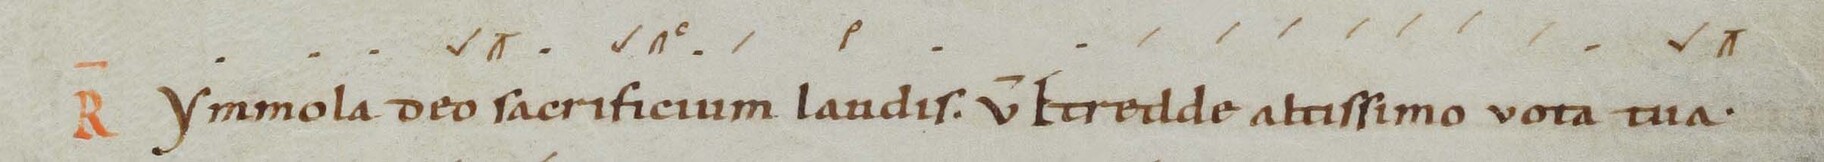 R̄ Ymmola deo sacrificium laudis. V̄ Et redde altissimo vota tua.